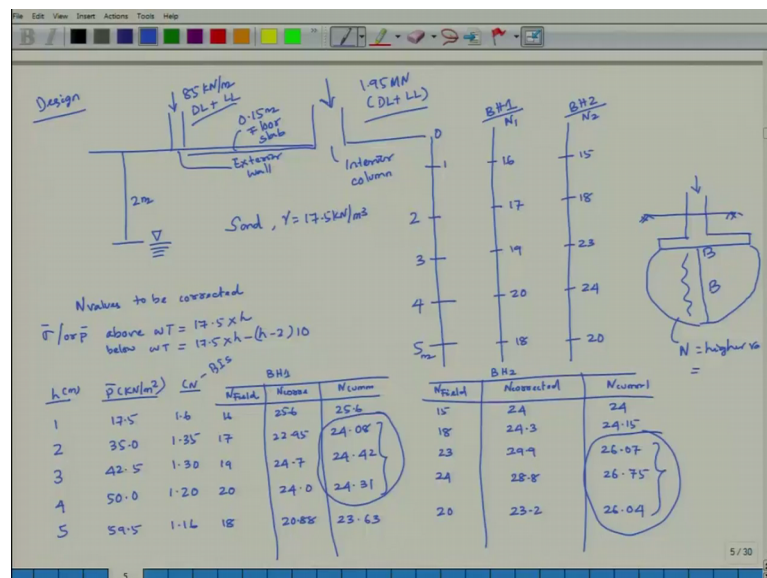 File Edit View Insert Actions Tools Help
B I
Design
85 KN/m
DL + LL
0.15m
Floor
slab
1.95 MN
(DL + LL)
Exterior
wall
Interior
column
2m
Sand, γ = 17.5 KN/m3
BH1
N1
BH2
N2
0
1 16 15
2 17 18
3 19 23
4 20 24
5m 18 20
B
B
N = higher
=
N values to be corrected
σ̄ / or p̄ above WT = 17.5 x h
below WT = 17.5 x h - (h-2) 10
h (m) p̄ (KN/m2) CN - BIS
BH1
NField Ncorre Ncumm
1 17.5 1.6 16 25.6 25.6
2 35.0 1.35 17 22.95 24.08
3 42.5 1.30 19 24.7 24.42
4 50.0 1.20 20 24.0 24.31
5 59.5 1.16 18 20.88 23.63
BH2
NField Ncorrected Ncumml
15 24 24
18 24.3 24.15
23 29.9 26.07
24 28.8 26.75
20 23.2 26.04
5 / 30
5